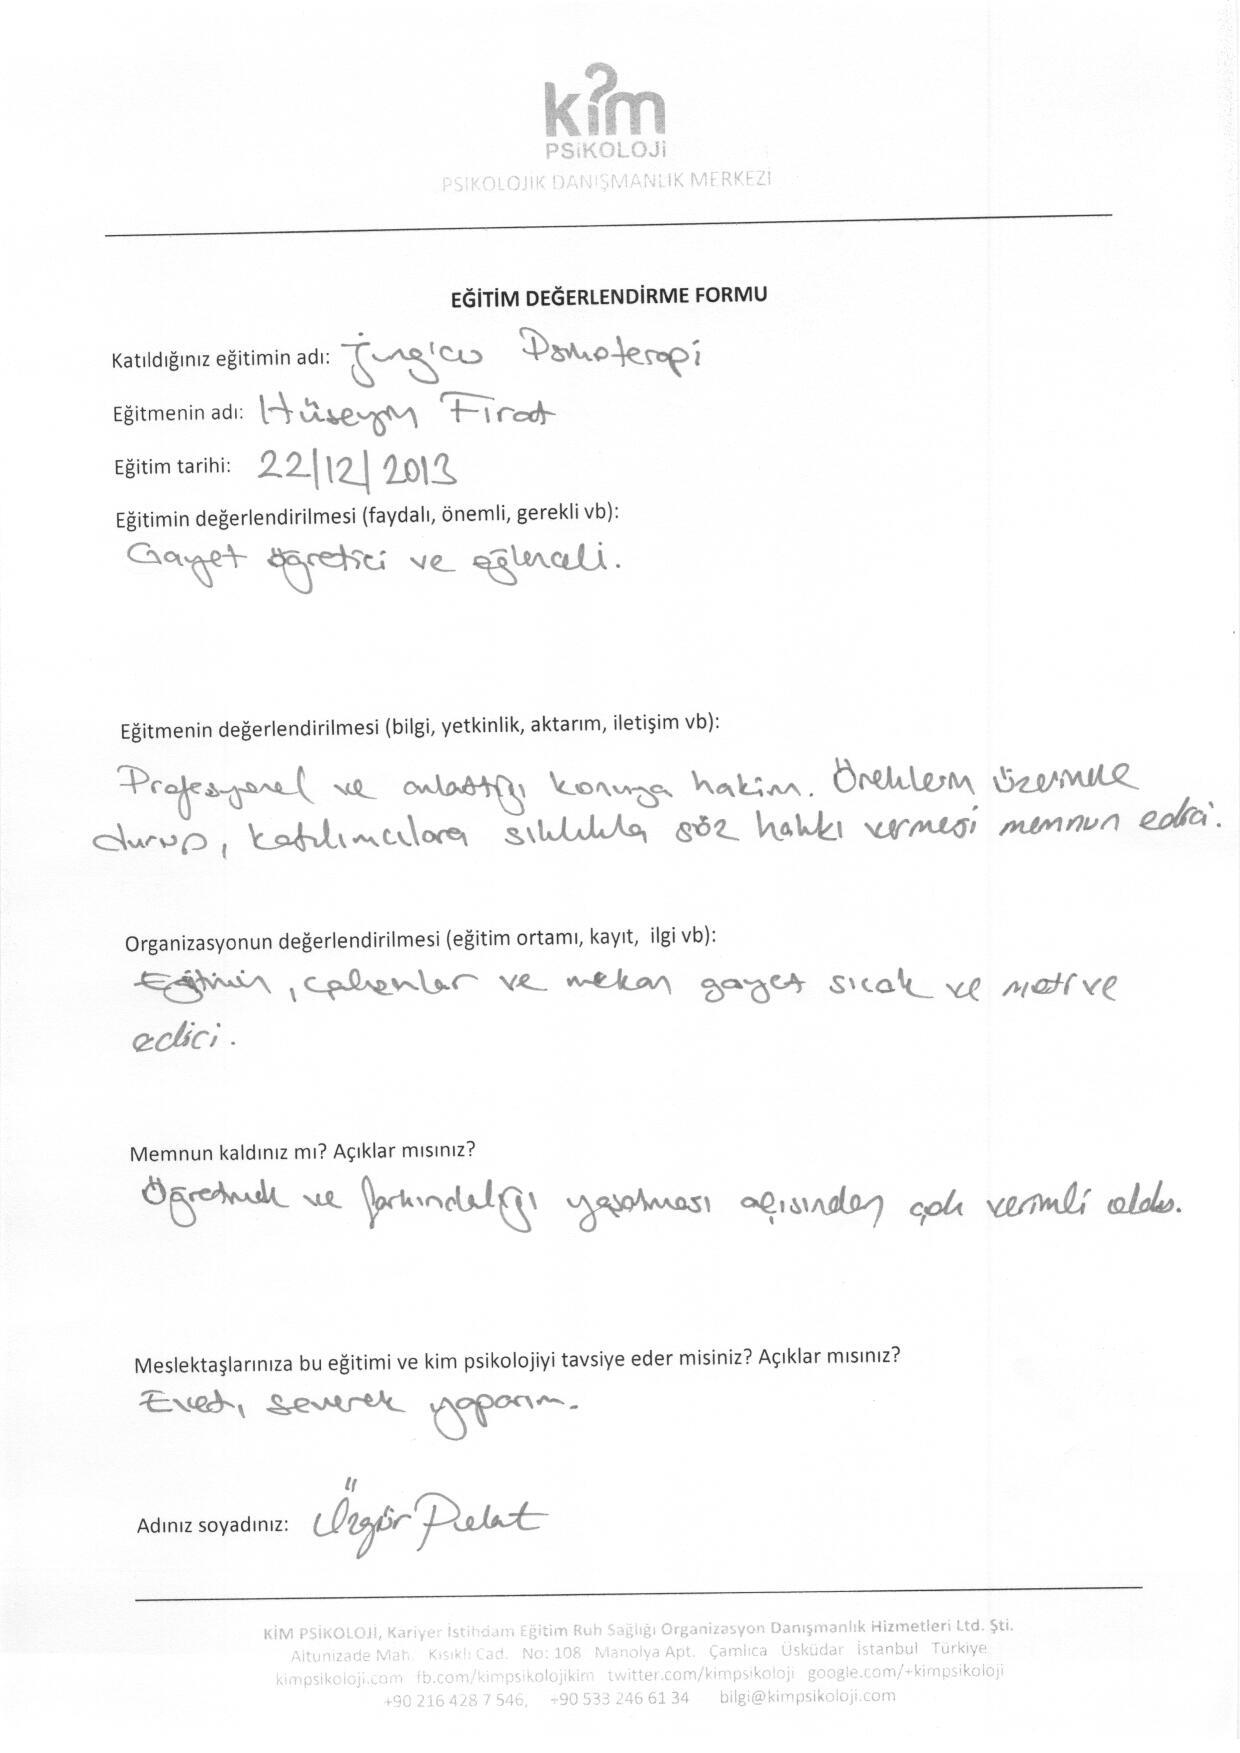 kim
PSiKOLOJi
PSİKOLOJİK DANIŞMANLIK MERKEZİ
EĞİTİM DEĞERLENDİRME FORMU
Katıldığınız eğitimin adı: Jung'cu Psikoterapi
Eğitmenin adı: Hüseyin Fırat
Eğitim tarihi: 22/12/2013
Eğitimin değerlendirilmesi (faydalı, önemli, gerekli vb):
Gayet öğretici ve eğlenceli.
Eğitmenin değerlendirilmesi (bilgi, yetkinlik, aktarım, iletişim vb):
Profesyonel ve anlattığı konuya hakim. Örneklerin üzerinde
durup, katılımcılara sıklıkla söz hakkı vermesi memnun edici.
Organizasyonun değerlendirilmesi (eğitim ortamı, kayıt, ilgi vb):
Eğitimin, çalışanlar ve mekan gayet sıcak ve motive
edici.
Memnun kaldınız mı? Açıklar mısınız?
Öğretmek ve farkındalığı yaşatması açısından çok verimli oldu.
Meslektaşlarınıza bu eğitimi ve kim psikolojiyi tavsiye eder misiniz? Açıklar mısınız?
Evet, severek yaparım.
Adınız soyadınız: Özgür Polat
KİM PSİKOLOJİ, Kariyer İstihdam Eğitim Ruh Sağlığı Organizasyon Danışmanlık Hizmetleri Ltd. Şti.
Altunizade Mah. Kısıklı Cad. No: 108 Manolya Apt. Çamlıca Üsküdar İstanbul Türkiye
kimpsikoloji.com fb.com/kimpsikolojikim twitter.com/kimpsikoloji google.com/+kimpsikoloji
+90 216 428 7 546, +90 533 246 61 34 bilgi@kimpsikoloji.com